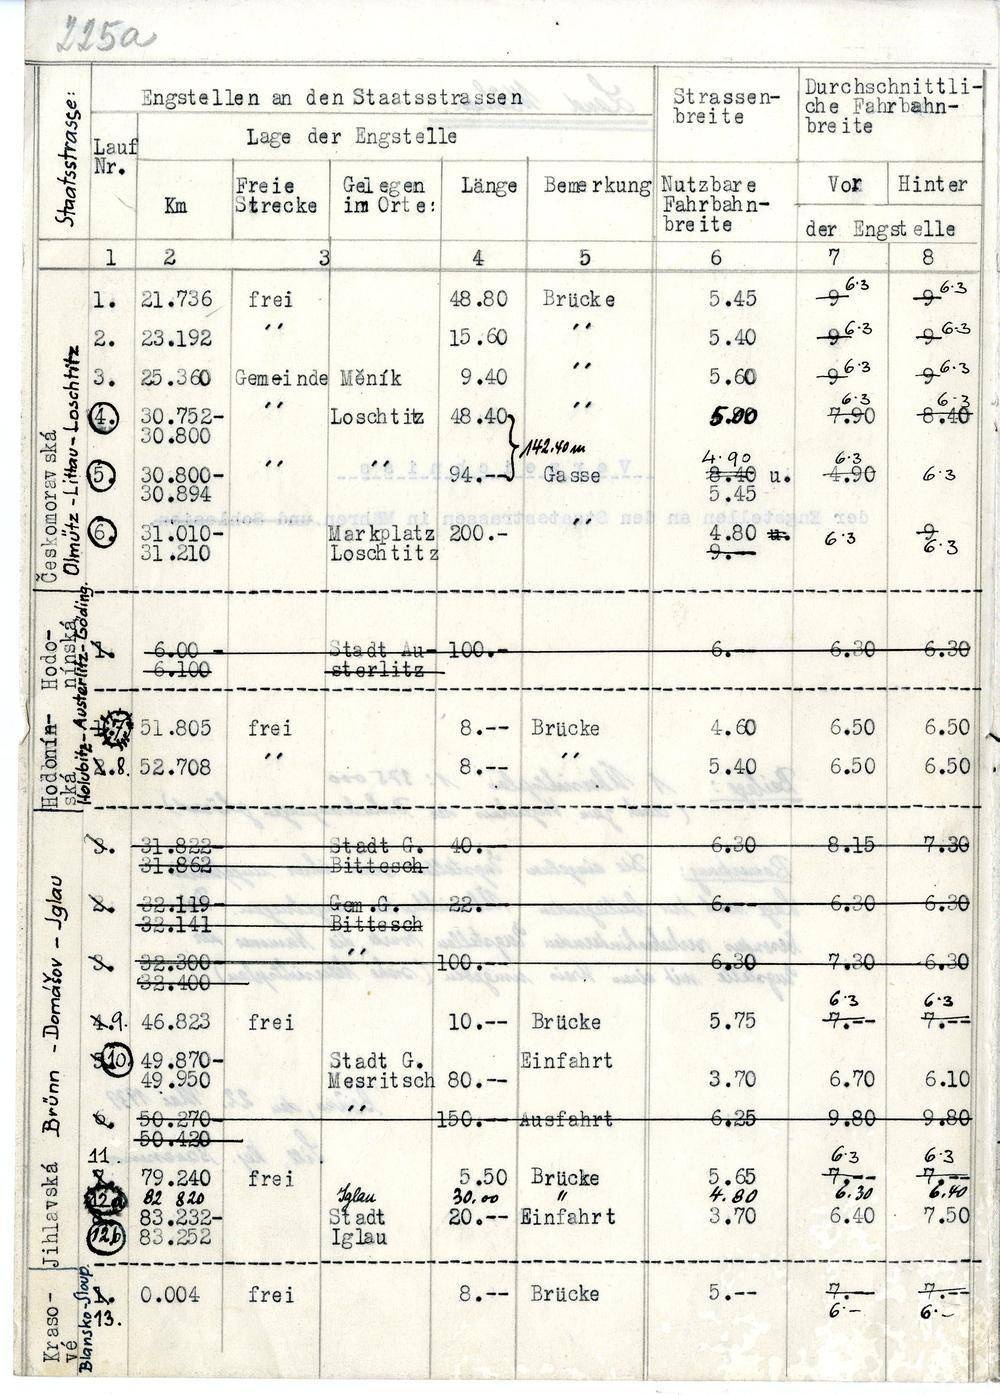 225a
Staatsstrasse:
Engstellen an den Staatsstrassen
Strassen-
breite
Durchschnittli-
che Fahrbahn-
breite
Lauf
Nr.
Lage der Engstelle
Km
Freie
Strecke
Gelegen
im Orte:
Länge
Bemerkung
Nutzbare
Fahrbahn-
breite
Vor
Hinter
der Engstelle
1 2 3 4 5 6 7 8
Českomoravská
Olmütz-Littau-Loschtitz
1. 21.736 frei 48.80 Brücke 5.45 9 6.3 9 6.3
2. 23.192 '' 15.60 '' 5.40 9 6.3 9 6.3
3. 25.360 Gemeinde Měník 9.40 '' 5.60 9 6.3 9 6.3
6.3 6.3
4. 30.752- '' Loschtitz 48.40 '' 5.00 7.90 8.40
30.800
142.40 m
4.90 6.3
5. 30.800- '' '' 94.-- Gasse 8.40 u. 4.90 6.3
30.894 5.45
6. 31.010- Markplatz 200.- '' 4.80 u. 6.3 9
31.210 Loschtitz 9.-- 6.3
Hodo-
nínská
Holubitz-Austerlitz-Göding.
1. 6.00 - Stadt Au- 100.- 6.-- 6.30 6.30
6.100 sterlitz
Hodonín-
ská
7. 51.805 frei 8.-- Brücke 4.60 6.50 6.50
2. 8. 52.708 '' 8.-- '' 5.40 6.50 6.50
Jihlavská
Brünn - Domášov - Iglau
31.822- Stadt G. 40.- 6.30 8.15 7.30
31.862 Bittesch
32.119- Gem.G. 22.- 6.-- 6.30 6.30
32.141 Bittesch
3. 32.300- '' 100.- 6.30 7.30 6.30
32.400
6.3 6.3
4. 9. 46.823 frei 10.-- Brücke 5.75 7.-- 7.--
5. 10. 49.870- Stadt G. Einfahrt
49.950 Mesritsch 80.-- 3.70 6.70 6.10
6. 50.270- '' 150.-- Ausfahrt 6.25 9.80 9.80
50.420
11. 6.3 6.3
7. 79.240 frei 5.50 Brücke 5.65 7.-- 7.--
12a 82 820 Iglau 30.00 '' 4.80 6.30 6.40
83.232- Stadt 20.-- Einfahrt 3.70 6.40 7.50
12b 83.252 Iglau
Kraso-
vé
Blansko-Sloup.
1. 0.004 frei 8.-- Brücke 5.-- 7.-- 7.--
13. 6.- 6.-